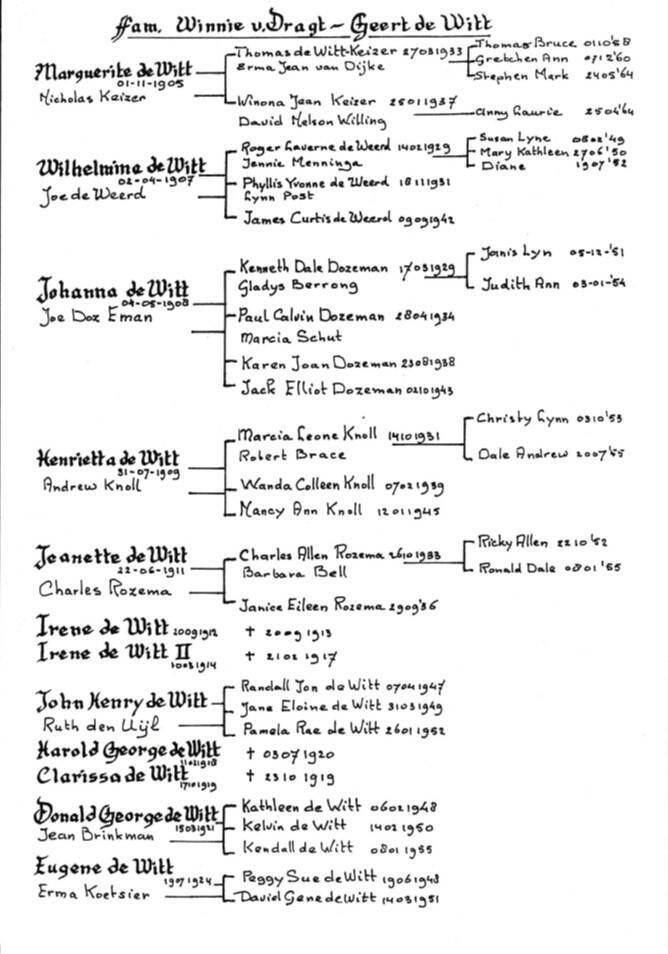 Fam. Winnie v. Dragt - Geert de Witt
Marguerite de Witt
01-11-1905
Nicholas Keizer
Thomas de Witt-Keizer 27031933
Erma Jean van Dijke
Thomas Bruce 0110'58
Gretchen Ann 0712'60
Stephen Mark 2405'64
Winona Jean Keizer 25011937
David Nelson Willing
Anny Laurie 2504'64
Wilhelmina de Witt
02-04-1907
Joe de Weerd
Roger Laverne de Weerd 14021929
Jennie Menninga
Susan Lyne 0802'49
Mary Kathleen 2706'50
Diane 1907'52
Phyllis Yvonne de Weerd 18111931
Lynn Post
James Curtis de Weerd 09091942
Johanna de Witt
04-05-1908
Joe Doz Eman
Kenneth Dale Dozeman 17031929
Gladys Berrong
Janis Lyn 05-12-'51
Judith Ann 03-01-'54
Paul Calvin Dozeman 28041934
Marcia Schut
Karen Joan Dozeman 23081938
Jack Elliot Dozeman 02101943
Henrietta de Witt
31-07-1909
Andrew Knoll
Marcia Leone Knoll 14101931
Robert Brace
Christy Lynn 0310'53
Dale Andrew 2007'55
Wanda Colleen Knoll 07021939
Nancy Ann Knoll 12011945
Jeanette de Witt
22-06-1911
Charles Rozema
Charles Allen Rozema 26101933
Barbara Bell
Ricky Allen 2210'52
Ronald Dale 0801'55
Janice Eileen Rozema 2909'36
Irene de Witt 20091912 † 20091913
Irene de Witt II † 21021917
10031914
John Henry de Witt
Ruth den Uijl
Randall Jon de Witt 07041947
Jane Eloine de Witt 31031949
Pamela Rae de Witt 26011952
Harold George de Witt † 03071920
11021918
Clarissa de Witt † 23101919
17101919
Donald George de Witt
15031921
Jean Brinkman
Kathleen de Witt 06021948
Kelvin de Witt 14021950
Kendall de Witt 08011955
Eugene de Witt
19071924
Erma Koetsier
Peggy Sue de Witt 19061948
David Gene de Witt 14031951